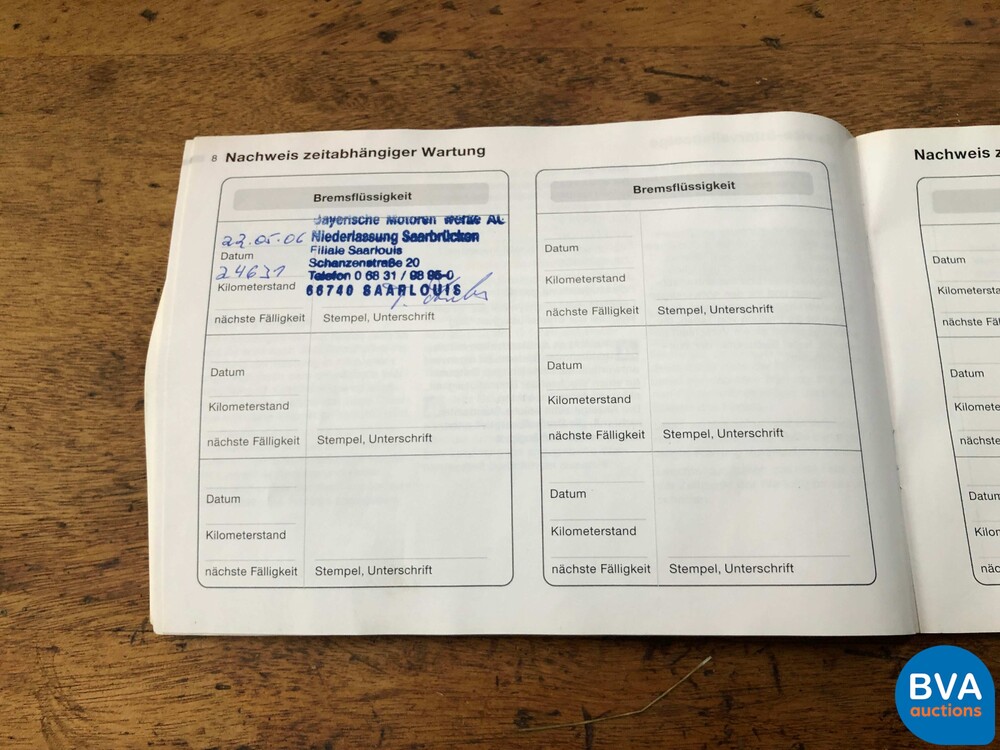 8 Nachweis zeitabhängiger Wartung
Bremsflüssigkeit
Bayerische Motoren Werke AG
22.05.06 Niederlassung Saarbrücken
Datum
Filiale Saarlouis
Schanzenstraße 20
24631
Telefon 0 68 31 / 98 95-0
Kilometerstand
66740 SAARLOUIS
nächste Fälligkeit Stempel, Unterschrift
Datum
Kilometerstand
nächste Fälligkeit Stempel, Unterschrift
Datum
Kilometerstand
nächste Fälligkeit Stempel, Unterschrift
Bremsflüssigkeit
Datum
Kilometerstand
nächste Fälligkeit Stempel, Unterschrift
Datum
Kilometerstand
nächste Fälligkeit Stempel, Unterschrift
Datum
Kilometerstand
nächste Fälligkeit Stempel, Unterschrift
Nachweis z
Datum
Kilometersta
nächste Fäl
Datum
Kilomete
nächste
Datum
Kilon
näc
BVA
auctions